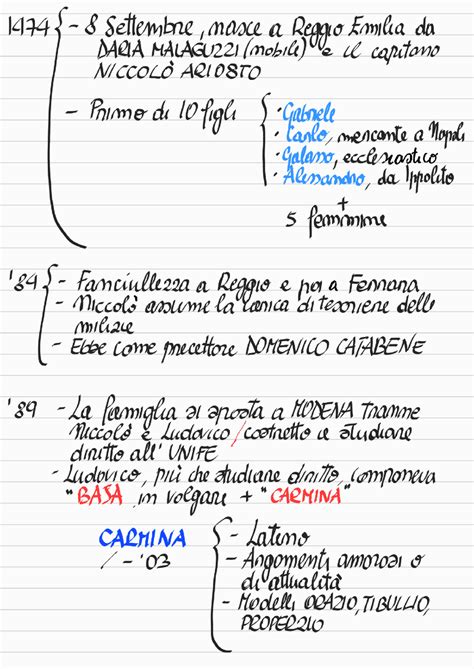 1474 - 8 Settembre, nasce a Reggio Emilia da
DARIA MALAGUZZI (nobili) e il capitano
NICCOLÒ ARIOSTO
- Primo di 10 figli
· Gabriele
· Carlo, mercante a Napoli
· Galasso, ecclesiastico
· Alessandro, da Ippolito
+
5 femmine
'84 - Fanciullezza a Reggio e poi a Ferrara
- Niccolò assume la carica di tesoriere delle
milizie
- Ebbe come precettore DOMENICO CATABENE
'89 - La famiglia si sposta a MODENA tranne
Niccolò e Ludovico / costretto a studiare
diritto all' UNIFE
- Ludovico, più che studiare diritto, componeva
"BAJA in volgare + "CARMINA"
CARMINA
/ - '03
- Latino
- Argomenti amorosi o
di attualità
- Modelli ORAZIO, TIBULLO,
PROPERZIO